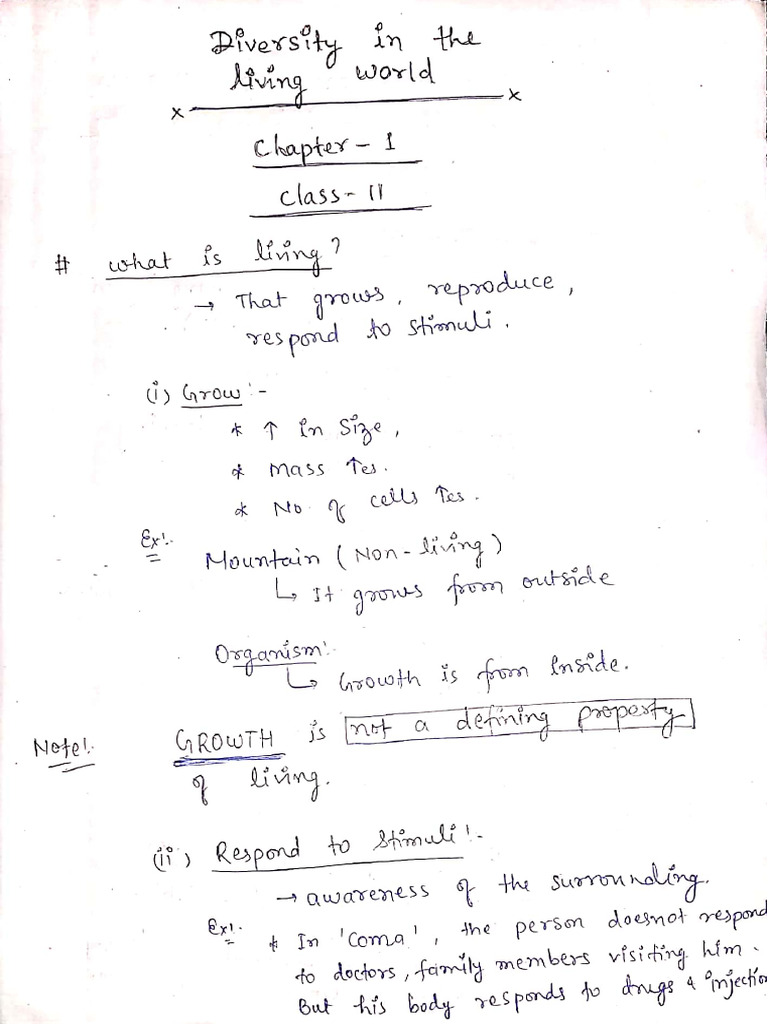 Diversity in the
living world
x x
Chapter - 1
Class - 11
# what is living?
→ That grows, reproduce,
respond to stimuli.
(i) Grow :-
* ↑ in size,
* mass ↑es.
* No. of cells ↑es.
Ex!.
Mountain (Non-living)
↳ It grows from outside
Organism!.
↳ Growth is from Inside.
Note!. GROWTH is not a defining property
of living.
(ii) Respond to stimuli!-
→ awareness of the surrounding.
Ex!. * In 'Coma', the person doesnot respond
to doctors, family members visiting him.
But his body responds to drugs & injection